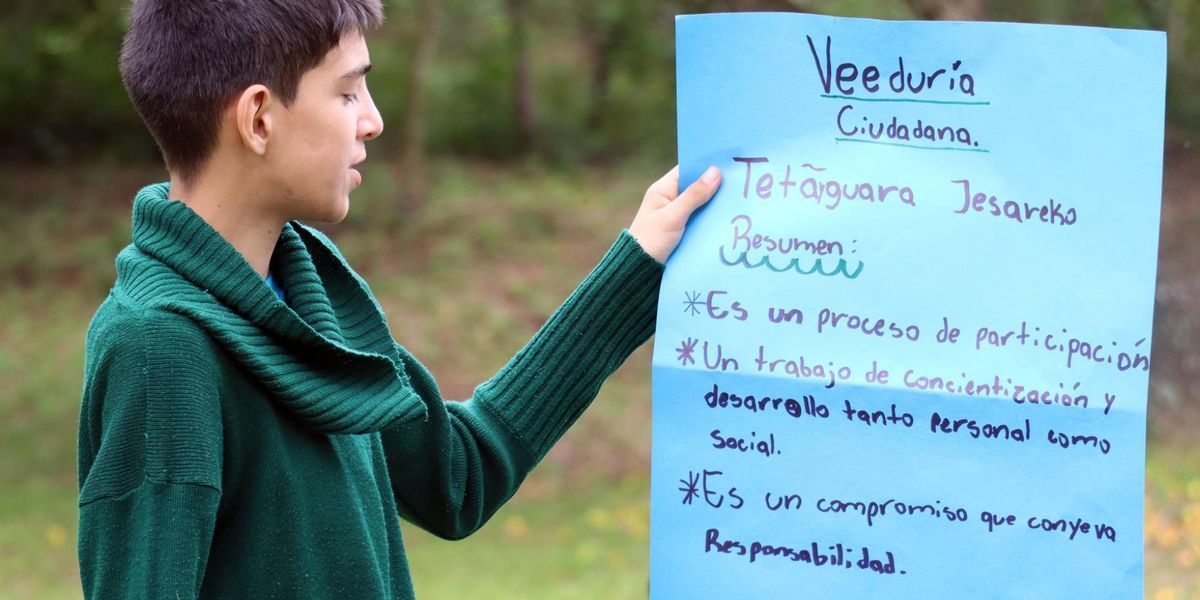 Veeduría
Ciudadana.
Tetãguara Jesareko
Resumen:
*Es un proceso de participación
*Un trabajo de concientización y
desarrollo tanto personal como
social.
*Es un compromiso que conyeva
Responsabilidad.